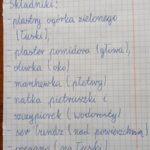 Składniki:
- plastry ogórka zielonego
(łuski),
- plaster pomidora (głowa),
- oliwka (oko)
- marchewka (płetwy)
- natka pietruszki i
szczypiorek (wodorosty)
- ser (nad powierzchnią)
(na łuski)